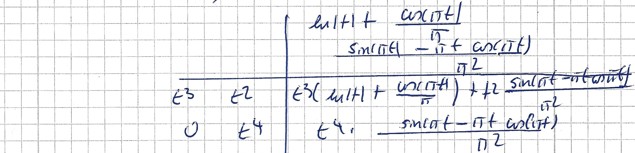 ln|t| + cos(πt)/π
sin(πt) - πt cos(πt)/π2
t3 t2 t3( ln|t| + cos(πt)/π ) + t2 sin(πt - πt cos(πt)/π2
0 t4 t4 · sin(πt - πt cos(πt)/π2